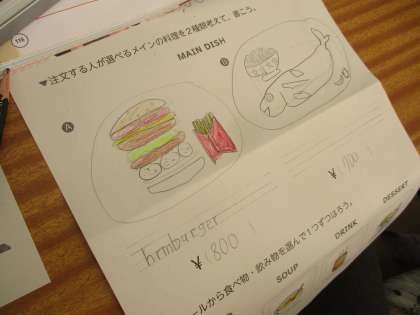 116
▼注文する人が選べるメインの料理を2種類考えて、書こう。
MAIN DISH
A
B
hrmbarger
¥ 800
¥ 1,700
ールから食べ物・飲み物を選んで1つずつはろう。
SOUP
DRINK
DESSERT